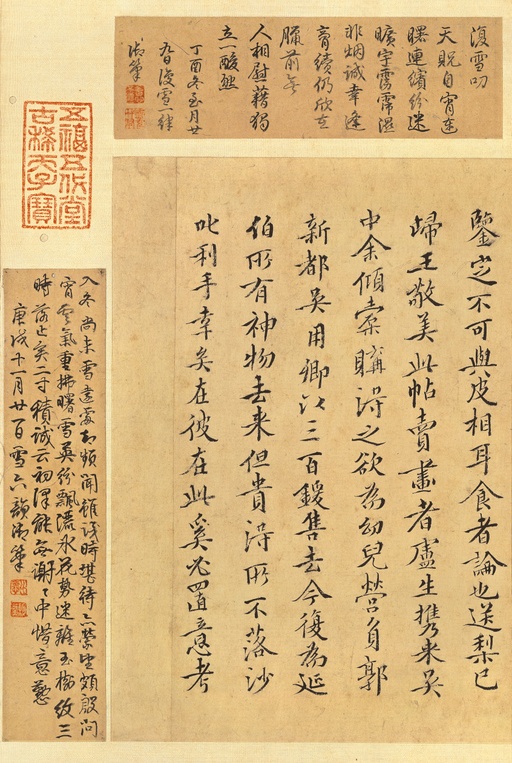 復雪叨
天貺自宵
曙連繽紛迷
曠宇濕
非烟誠幸逢
膏續仍欣在
臘前每
人相慰藉獨
立一酸然
丁酉冬至月廿
九日復雪一律
御筆
五福五代堂
古稀天子寶
鑒定不可與皮相耳食者論也送梨已
歸王敬美此帖賣畫者盧生携來吳
中余傾橐購得之欲為幼兒營負郭
新都吳用卿以三百鍰售去今復為延
伯所有神物去來但貴得所不落沙
叱利手幸矣在彼在此奚必置意考
入冬尚未雪遠處頻聞雖時堪待亦縈望頗殷
宵雲氣重拂曙雪英紛飄漾冰花勢迷離玉樹紋三
時落止亥二寸積誠云初澤能無謝謝中惜意懃
庚戌十一月廿日雪六韻御筆